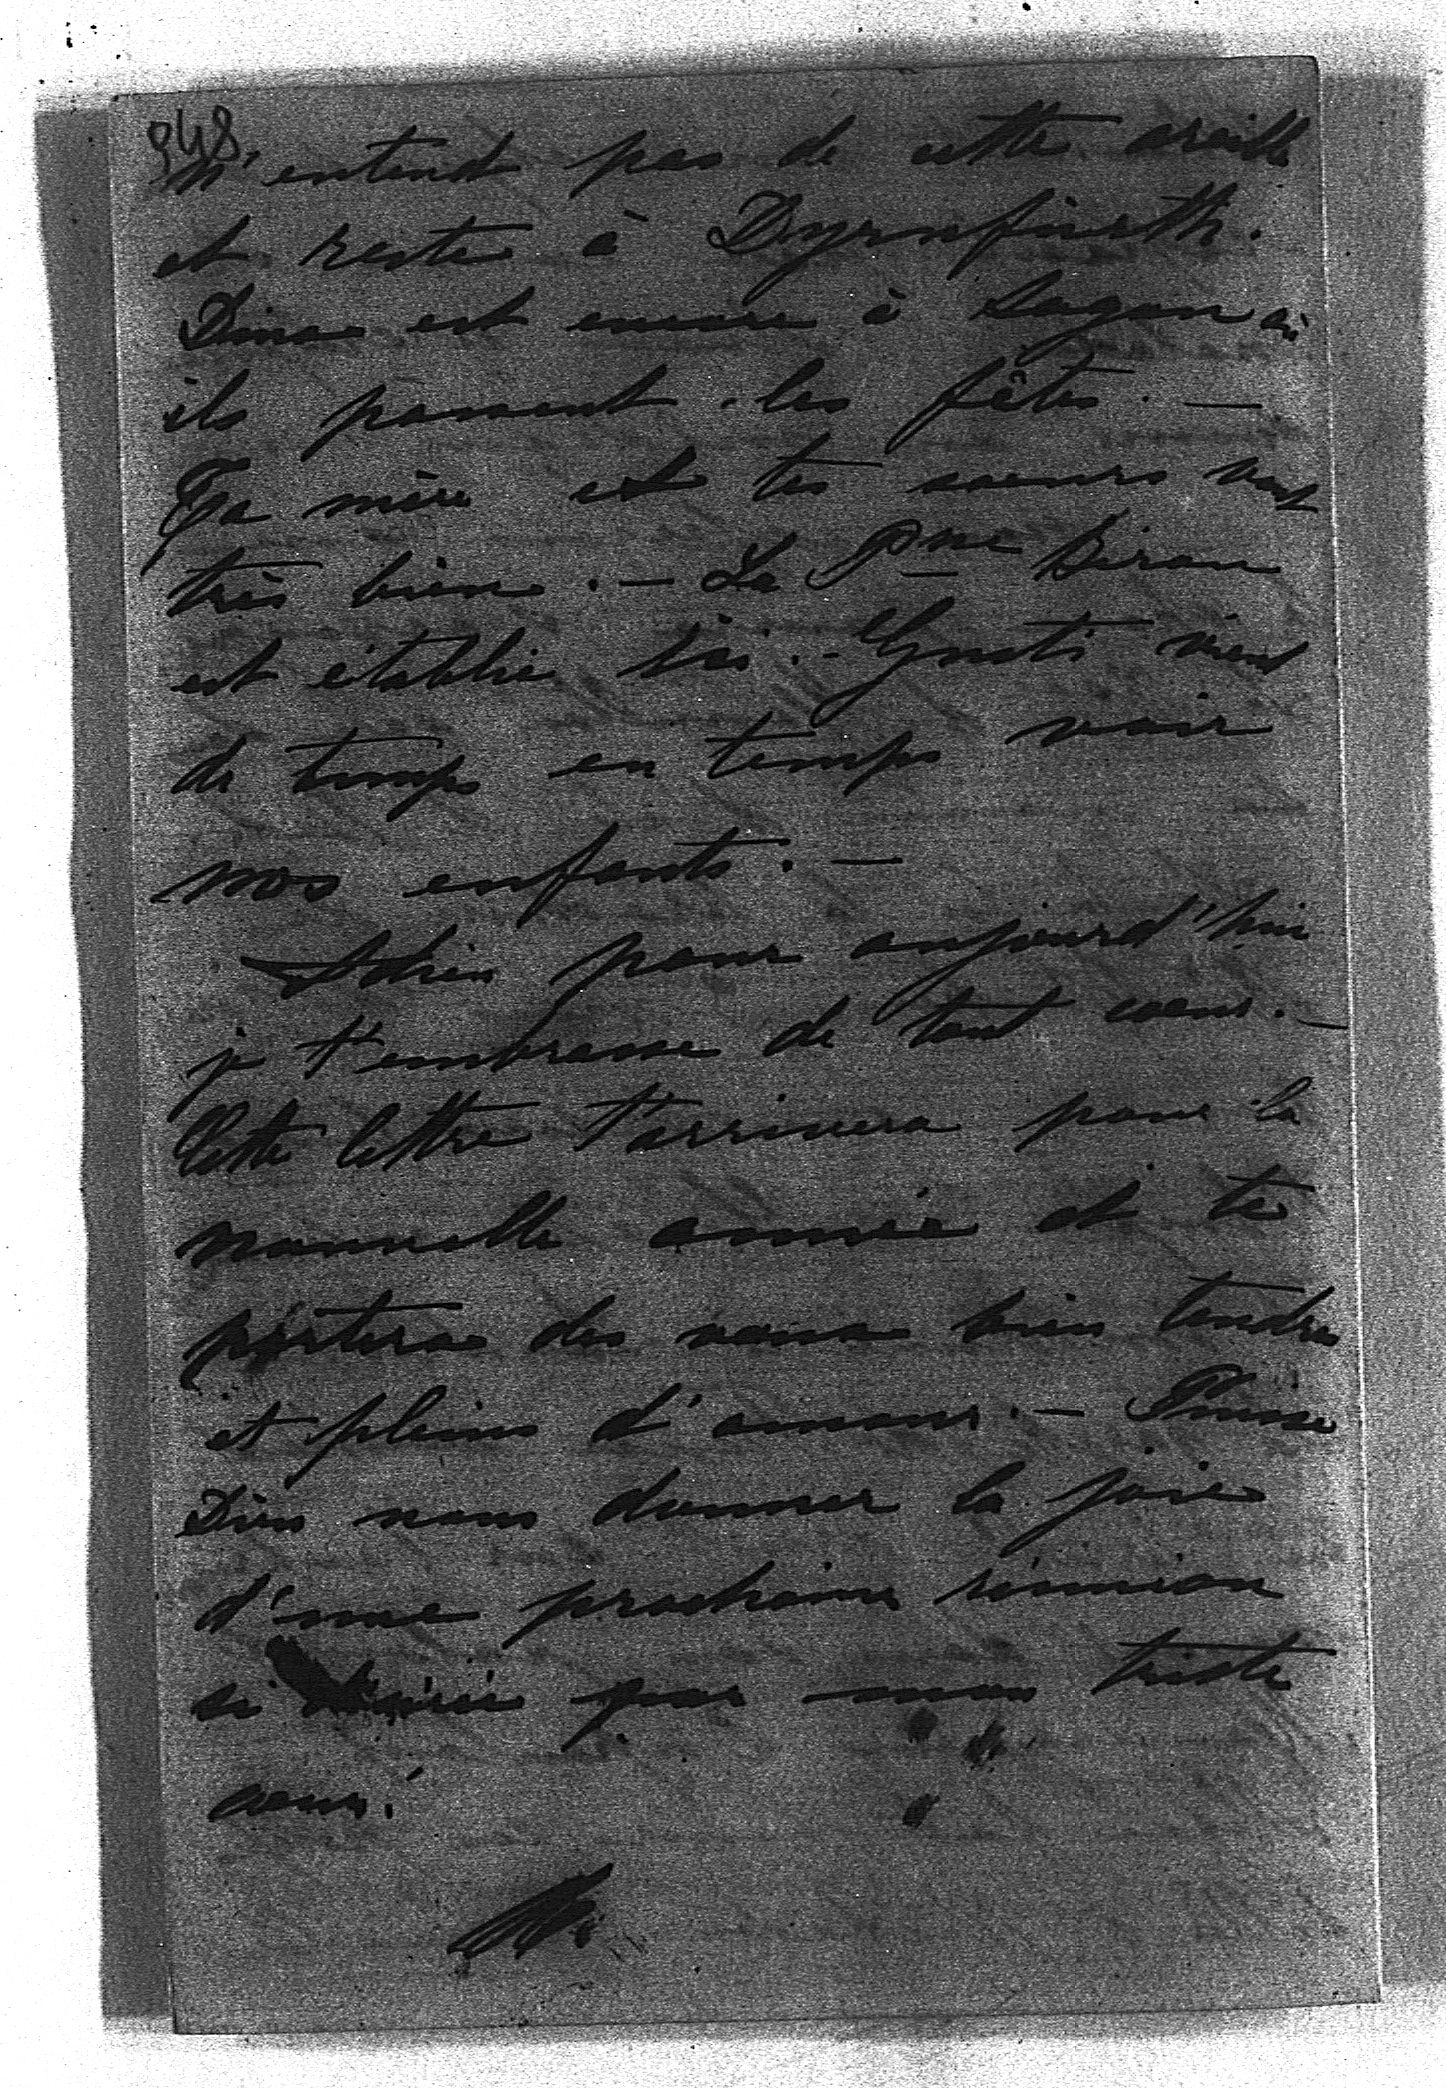 948.
n'entend pas de cette oreille
et reste à Dyrnfurth.
Dino est encore à Sagan où
ils passent les fêtes. —
Ta mère et tes soeurs vont
très bien. — La Psse Biron
est établie ici. — Gusti vient
de temps en temps voir
nos enfants. —
Adieu pour aujourd'hui
je t'embrasse de tout coeur. —
Cette lettre t'arrivera pour la
nouvelle année et te
portera des voeux bien tendres
et pleins d'amour. — Puisse
Dieu nous donner la joie
d'une prochaine réunion
si désirée par mon triste
coeur!